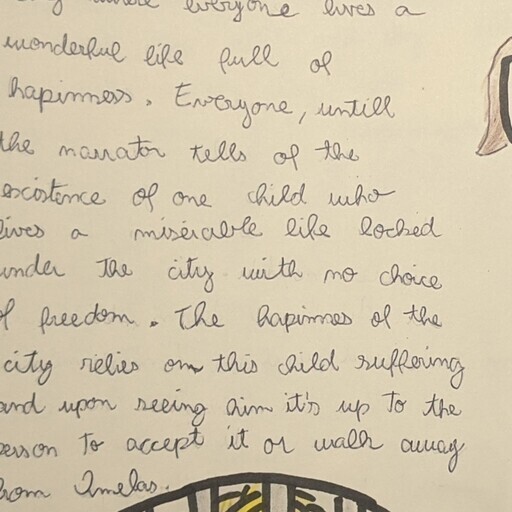 where everyone lives a
wonderful life full of
hapinness. Everyone, untill
the narrator tells of the
excistence of one child who
lives a misérable life locked
under the city with no choice
of freedom. The hapinnes of the
city rélies on this child suffering
and upon seeing him it's up to the
person to accept it or walk away
from Omelas.